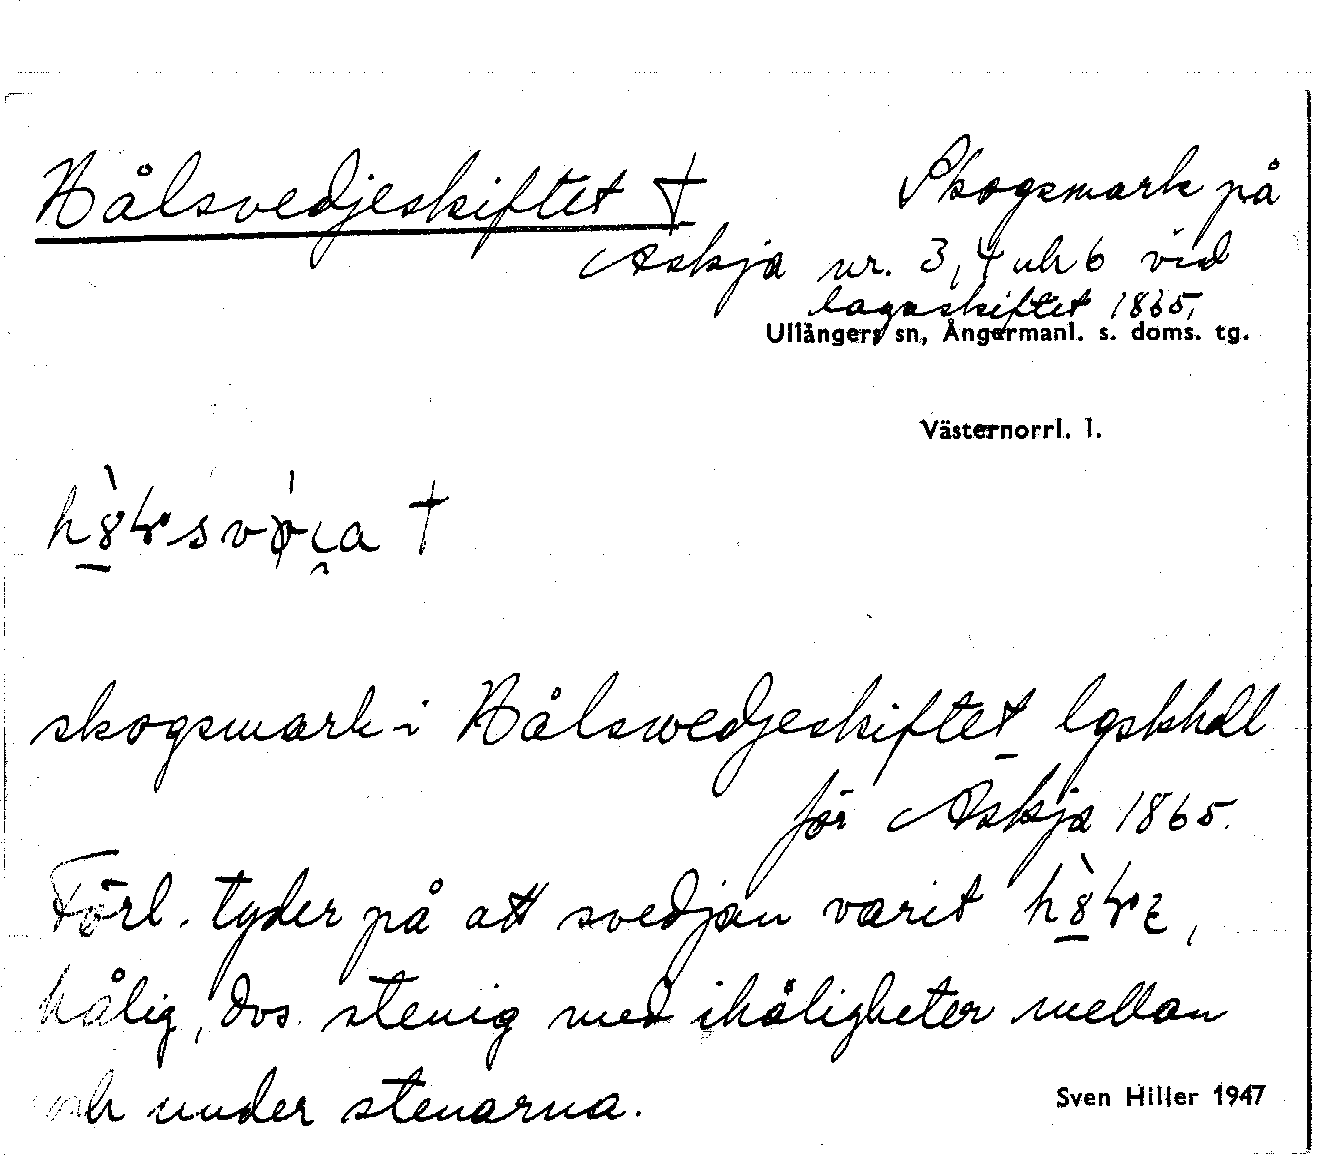 Hålsvedjeskiftet †
Skogsmark på
Askja nr. 3, 4 och 6 vid
lagaskiftet 1865,
Ullångers sn, Ångermanl. s. doms. tg.
Västernorrl. l.
†
skogsmark i Hålswedjeskiftet lgskhdl
för Askja 1865.
Förl. tyder på att svedjan varit
hålig, dvs. stenig med ihåligheter mellan
och under stenarna.
Sven Hiller 1947